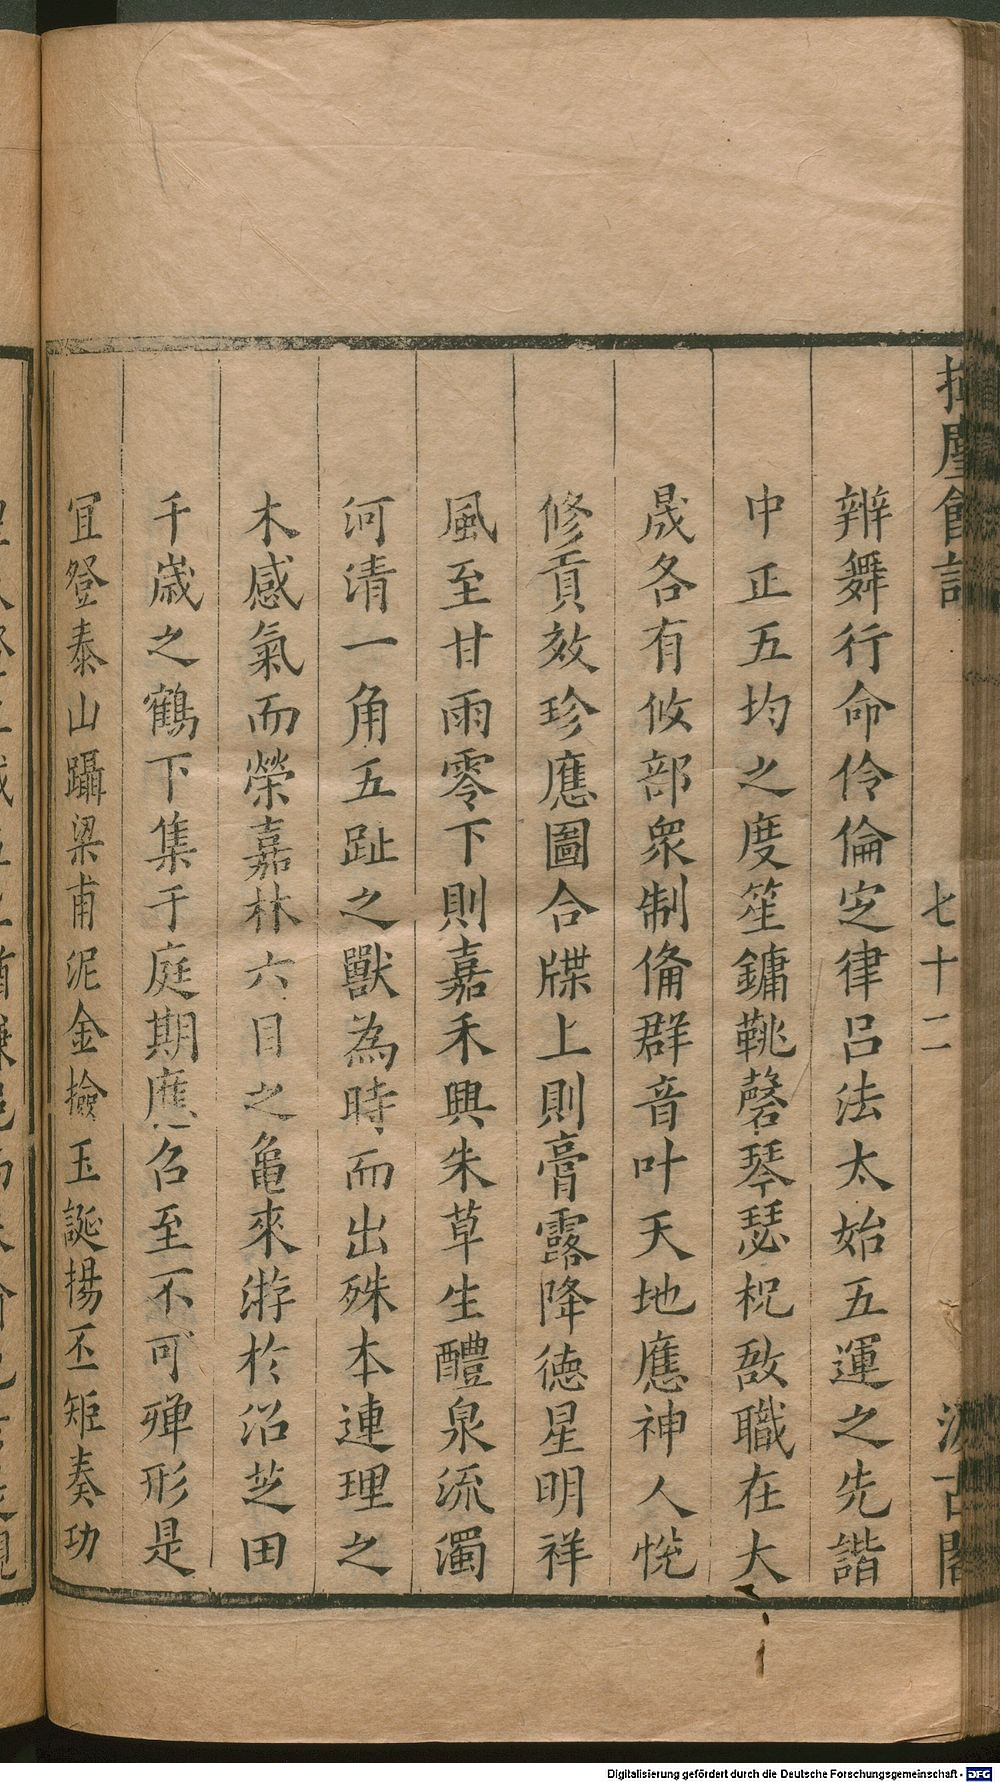 七十二
辨舞行命伶倫定律呂法太始五運之先諧
中正五均之度笙鏞鞉磬琴瑟柷敔職在大
晟各有攸部衆制俻群音叶天地應神人悅
修貢效珍應圖合牒上則膏露降德星明祥
風至甘雨零下則嘉禾興朱草生醴泉流濁
河清一角五趾之獸為時而出殊本連理之
木感氣而榮嘉林六目之龜來游於沼芝田
千歲之鶴下集于庭期應召至不可殫形是
冝登泰山躡梁甫泥金撿玉誕揚丕矩奏功
Digitalisierung gefördert durch die Deutsche Forschungsgemeinschaft - DFG